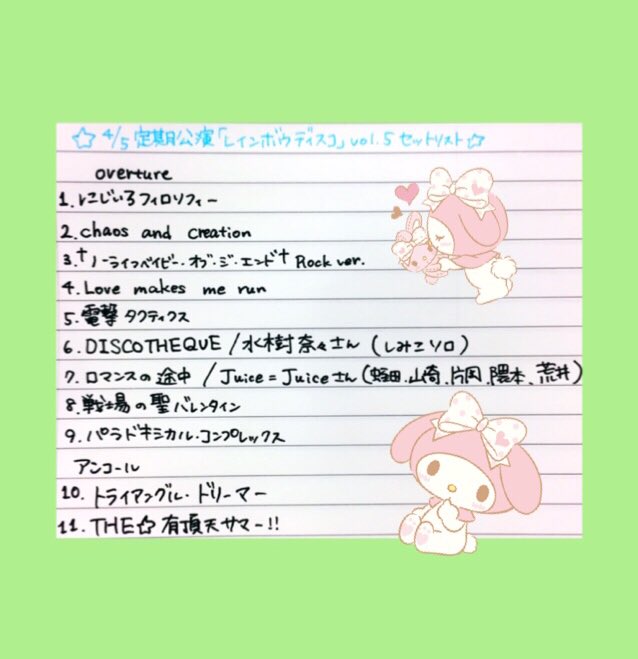 ☆4/5 定期公演「レインボウディスコ」vol.5 セットリスト☆
overture
1. にじいろフィロソフィー
2. chaos and creation
3. †ノーライフベイビー・オブ・ジ・エンド† Rock ver.
4. Love makes me run
5. 電撃タクティクス
6. DISCOTHEQUE / 水樹奈々さん (しみこソロ)
7. ロマンスの途中 / Juice=Juiceさん (蛭田.山崎.片岡.隈本.荒井)
8. 戦場の聖バレンタイン
9. パラドキシカル・コンプレックス
アンコール
10. トライアングル・ドリーマー
11. THE☆有頂天サマー!!